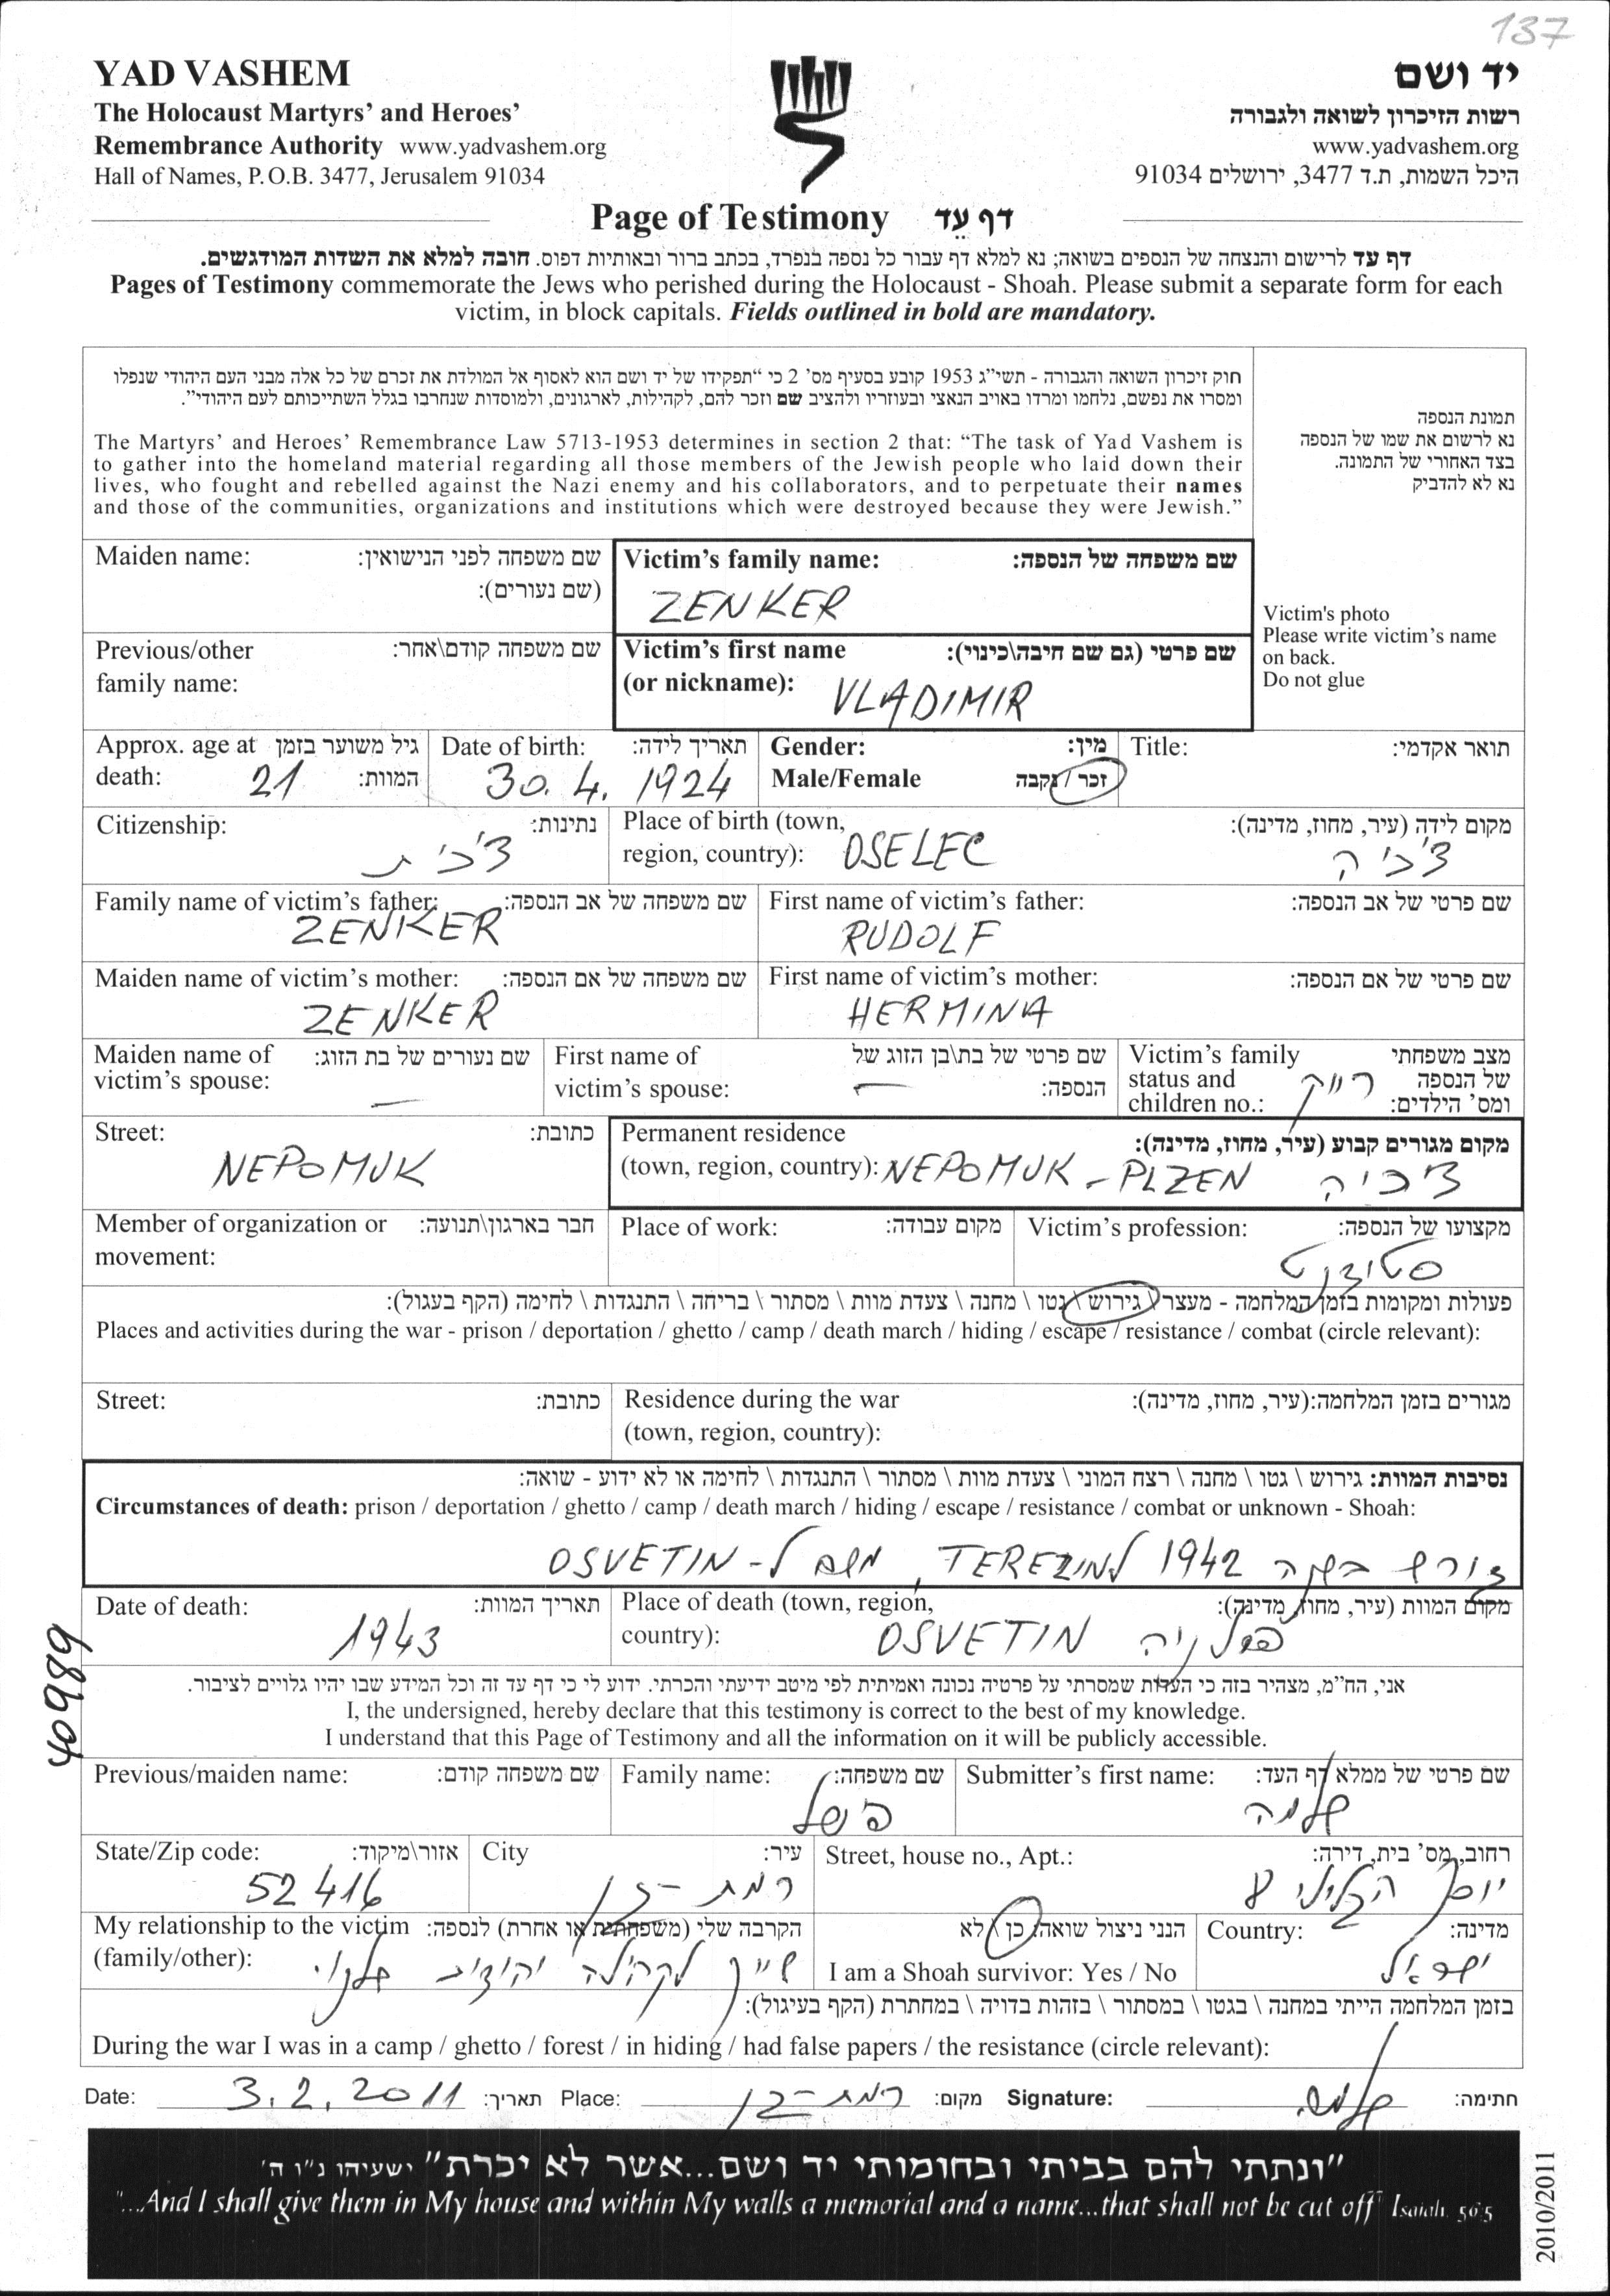 137
YAD VASHEM
יד ושם
The Holocaust Martyrs' and Heroes'
רשות הזיכרון לשואה ולגבורה
Remembrance Authority www.yadvashem.org
www.yadvashem.org
Hall of Names, P.O.B. 3477, Jerusalem 91034
היכל השמות, ת.ד 3477, ירושלים 91034
Page of Testimony דף עֵד
דף עד לרישום והנצחה של הנספים בשואה; נא למלא דף עבור כל נספה בנפרד, בכתב ברור ובאותיות דפוס. חובה למלא את השדות המודגשים.
Pages of Testimony commemorate the Jews who perished during the Holocaust - Shoah. Please submit a separate form for each
victim, in block capitals. Fields outlined in bold are mandatory.
חוק זיכרון השואה והגבורה - תשי"ג 1953 קובע בסעיף מס' 2 כי "תפקידו של יד ושם הוא לאסוף אל המולדת את זכרם של כל אלה מבני העם היהודי שנפלו
ומסרו את נפשם, נלחמו ומרדו באויב הנאצי ובעוזריו ולהציב שם וזכר להם, לקהילות, לארגונים, ולמוסדות שנחרבו בגלל השתייכותם לעם היהודי".
The Martyrs' and Heroes' Remembrance Law 5713-1953 determines in section 2 that: "The task of Yad Vashem is
to gather into the homeland material regarding all those members of the Jewish people who laid down their
lives, who fought and rebelled against the Nazi enemy and his collaborators, and to perpetuate their names
and those of the communities, organizations and institutions which were destroyed because they were Jewish."
תמונת הנספה
נא לרשום את שמו של הנספה
בצד האחורי של התמונה.
נא לא להדביק
Victim's photo
Please write victim's name
on back.
Do not glue
Maiden name: שם משפחה לפני הנישואין:
(שם נעורים):
Victim's family name: שם משפחה של הנספה:
ZENKER
Previous/other שם משפחה קודם\אחר:
family name:
Victim's first name שם פרטי (גם שם חיבה\כינוי):
(or nickname): VLADIMIR
Approx. age at גיל משוער בזמן
death: 21 המוות:
Date of birth: תאריך לידה:
30. 4. 1924
Gender: מין:
Male/Female זכר / נקבה
Title: תואר אקדמי:
Citizenship: נתינות:
צ'כית
Place of birth (town, מקום לידה (עיר, מחוז, מדינה):
region, country): OSELEC צ'כיה
Family name of victim's father: שם משפחה של אב הנספה:
ZENKER
First name of victim's father: שם פרטי של אב הנספה:
RUDOLF
Maiden name of victim's mother: שם משפחה של אם הנספה:
ZENKER
First name of victim's mother: שם פרטי של אם הנספה:
HERMINA
Maiden name of שם נעורים של בת הזוג:
victim's spouse: —
First name of שם פרטי של בת\בן הזוג של
victim's spouse: — הנספה:
Victim's family מצב משפחתי
status and של הנספה
children no.: ומס' הילדים:
רווק
Street: כתובת:
NEPOMUK
Permanent residence מקום מגורים קבוע (עיר, מחוז, מדינה):
(town, region, country): NEPOMUK - PLZEN צ'כיה
Member of organization or חבר בארגון\תנועה:
movement:
Place of work: מקום עבודה:
Victim's profession: מקצועו של הנספה:
סטודנט
פעולות ומקומות בזמן המלחמה - מעצר \ גירוש \ גטו \ מחנה \ צעדת מוות \ מסתור \ בריחה \ התנגדות \ לחימה (הקף בעגול):
Places and activities during the war - prison / deportation / ghetto / camp / death march / hiding / escape / resistance / combat (circle relevant):
Street: כתובת:
Residence during the war מגורים בזמן המלחמה:(עיר, מחוז, מדינה):
(town, region, country):
נסיבות המוות: גירוש \ גטו \ מחנה \ רצח המוני \ צעדת מוות \ מסתור \ התנגדות \ לחימה או לא ידוע - שואה:
Circumstances of death: prison / deportation / ghetto / camp / death march / hiding / escape / resistance / combat or unknown - Shoah:
גורש בשנה 1942 לTEREZIN, משם ל-OSVETIN
Date of death: תאריך המוות:
1943
Place of death (town, region, מקום המוות (עיר, מחוז, מדינה):
country): OSVETIN פולניה
אני, הח"מ, מצהיר בזה כי העדות שמסרתי על פרטיה נכונה ואמיתית לפי מיטב ידיעתי והכרתי. ידוע לי כי דף עד זה וכל המידע שבו יהיו גלויים לציבור.
I, the undersigned, hereby declare that this testimony is correct to the best of my knowledge.
I understand that this Page of Testimony and all the information on it will be publicly accessible.
40989
Previous/maiden name: שם משפחה קודם:
Family name: שם משפחה:
פישל
Submitter's first name: שם פרטי של ממלא דף העד:
שלמה
State/Zip code: אזור\מיקוד:
52416
City עיר:
רמת-גן
Street, house no., Apt.: רחוב, מס' בית, דירה:
יוסף הגלילי 8
My relationship to the victim הקרבה שלי (משפחתית או אחרת) לנספה:
(family/other): שייך לקהילה יהודית
הנני ניצול שואה: כן \ לא
I am a Shoah survivor: Yes / No
Country: מדינה:
ישראל
בזמן המלחמה הייתי במחנה \ בגטו \ במסתור \ בזהות בדויה \ במחתרת (הקף בעיגול):
During the war I was in a camp / ghetto / forest / in hiding / had false papers / the resistance (circle relevant):
Date: 3.2.2011 תאריך: Place: רמת-גן מקום: Signature: חתימה:
"ונתתי להם בביתי ובחומותי יד ושם...אשר לא יכרת" ישעיהו נ"ו ה'
"...And I shall give them in My house and within My walls a memorial and a name...that shall not be cut off" Isaiah, 56:5
2010/2011